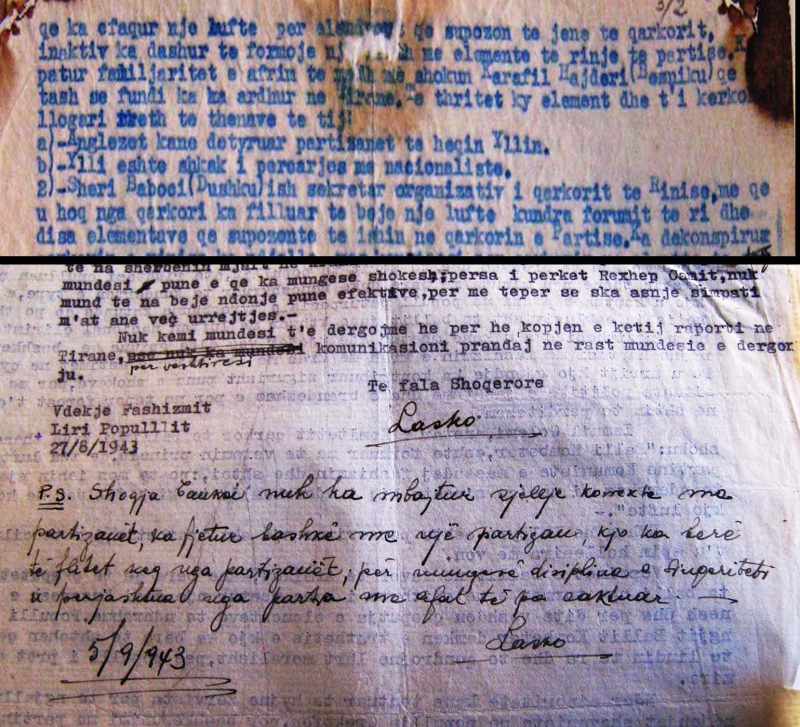 3/2
qe ka cfaqur nje lufte per elementet qe supozon te jene te qarkorit,
inaktiv ka dashur te formoje nj me elemente te rinje te partise.K
patur familjaritet e afrim te madh me shokun Karafil Hajderi(Besniku)qe
tash se fundi ka ka ardhur ne Tirane.-e thritet ky element dhe t'i kerko
llogari rreth te thenave te tij:
a)-Anglezet kane detyruar partizanet te heqin Yllin.
b)-Ylli eshte shkak i percarjes me nacionaliste.
2)-Sheri Baboci(Dushku)ish sekretar organizativ i qarkorit te Rinise,me qe
u hoq nga qarkori ka filluar te beje nje lufte kundra forumit te ri dhe
disa elementave qe supozonte te ishin ne qarkorin e Partise.Ka dekonspirue
te na sherbenin mjaft ne
mundesi pune e qe ka mungese shokesh;persa i perket Rexhep Canit,nuk
mund te na beje ndonje pune efektive,per me teper se ska asnje simpati
m'at ane veç urrejtjes.-
Nuk kemi mundesi t'e dergojme he per he kopjen e ketij raporti ne
Tirane, pse nuk ka mundesi komunikasioni prandaj ne rast mundesie e dergon
per veshtiresi
ju.
Te fala Shoqerore
Lasko
Vdekje Fashizmit
Liri Popullit
27/8/1943
P.S. Shoqja nuk ka mbajtur sjellje korrekte me
partizanët, ka fjetur bashkë me një partizan, kjo ka berë
të flitet keq nga partizanët, për mungesë disipline e singeriteti
u perjashtua nga partia me afat të pa caktuar. —
Lasko
5/9/943